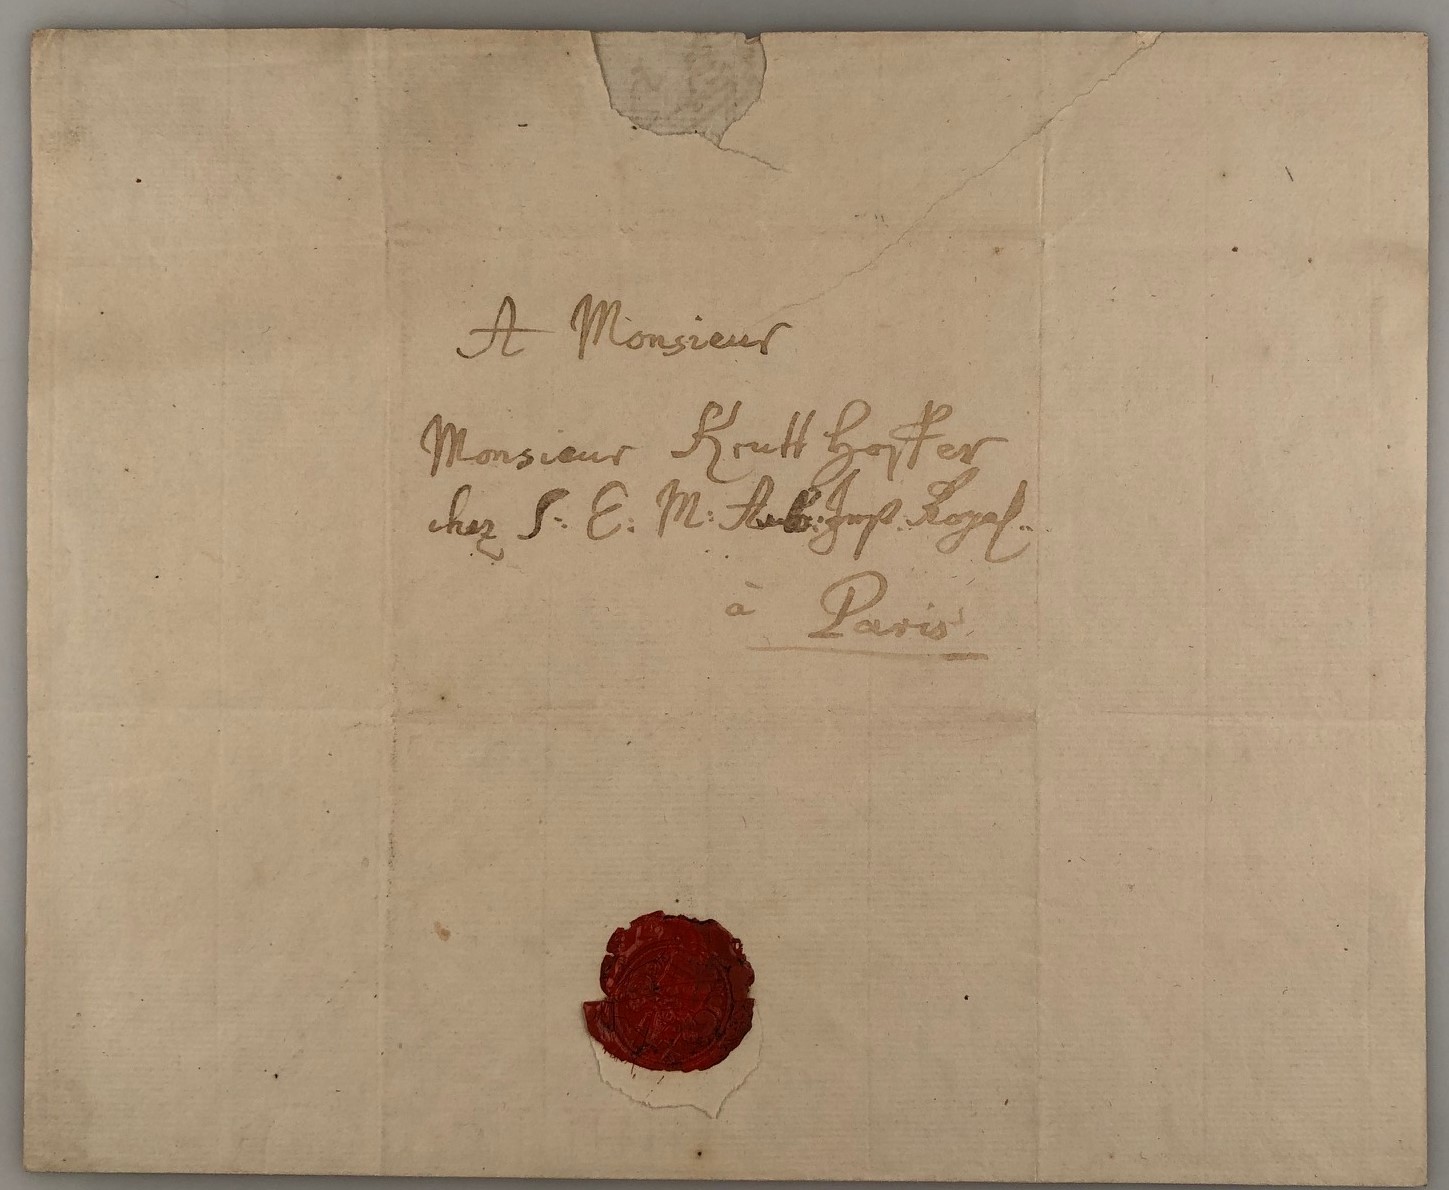 A Monsieur
Monsieur Krutthoffer
chez S. E. M: Amb: Imp: Royal.
à Paris